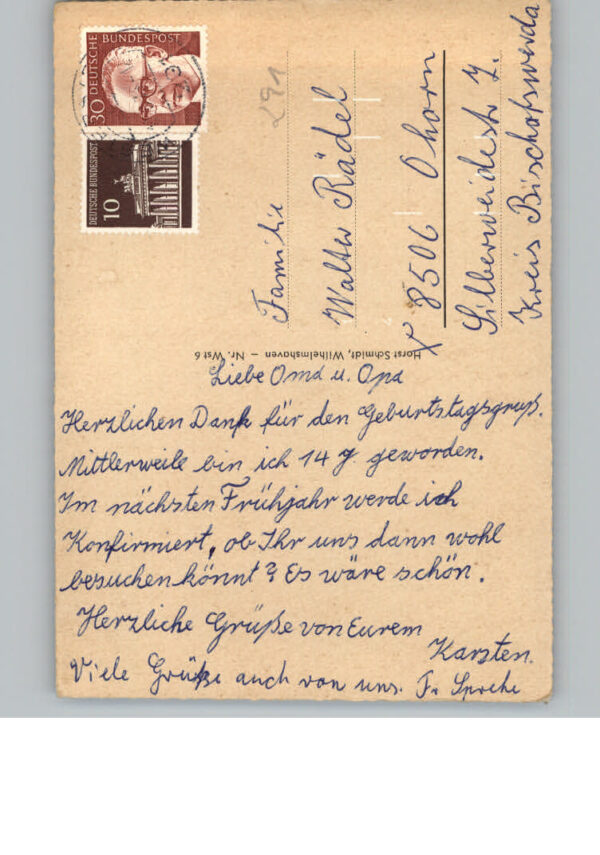 DEUTSCHE BUNDESPOST
30
DEUTSCHE BUNDESPOST
10
291
Familie
Walter Rädel
X 8506 Ohorn
Silberweidestr 7.
Kreis Bischofswerda
Horst Schmidt, Wilhelmshaven – Nr. Wst 6
Liebe Oma u. Opa
Herzlichen Dank für den Geburtstagsgruß.
Mittlerweile bin ich 14 J. geworden.
Im nächsten Frühjahr werde ich
Konfirmiert, ob Ihr uns dann wohl
besuchen könnt? Es wäre schön.
Herzliche Grüße von Eurem
Karsten.
Viele Grüße auch von uns. Fr.